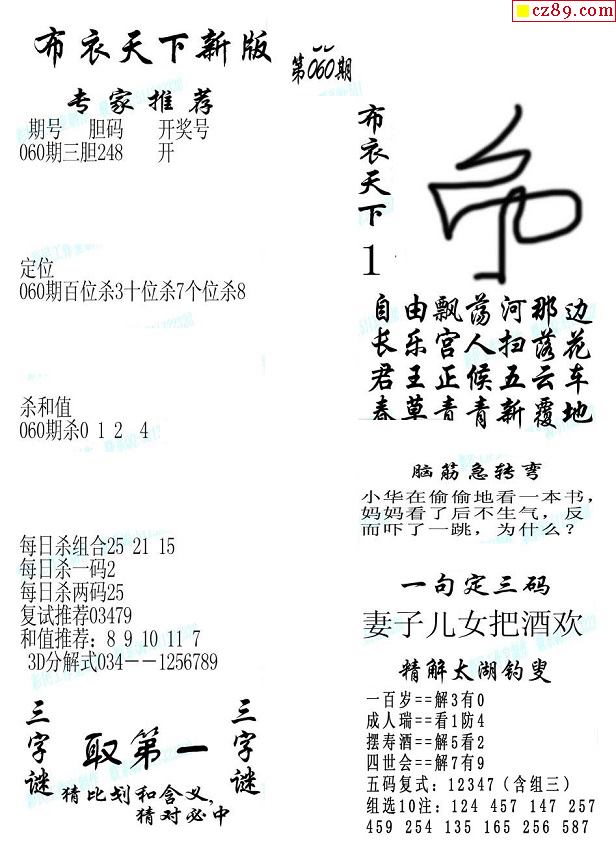 cz89.com
布衣天下新版
第060期
专家推荐
期号 胆码 开奖号
060期三胆248 开
定位
060期百位杀3十位杀7个位杀8
杀和值
060期杀0 1 2 4
每日杀组合25 21 15
每日杀一码2
每日杀两码25
复试推荐03479
和值推荐：8 9 10 11 7
3D分解式034--1256789
三字谜
取第一
三字谜
猜比划和含义，
猜对必中
布衣天下
1
自由飘荡河那边
长乐宫人扫落花
君王正候五云车
春草青青新覆地
脑筋急转弯
小华在偷偷地看一本书，
妈妈看了后不生气，反
而吓了一跳，为什么？
一句定三码
妻子儿女把酒欢
精解太湖钓叟
一百岁==解3有0
成人瑞==看1防4
摆寿酒==解5看2
四世会==解7有9
五码复式：12347（含组三）
组选10注：124 457 147 257
459 254 135 165 256 587